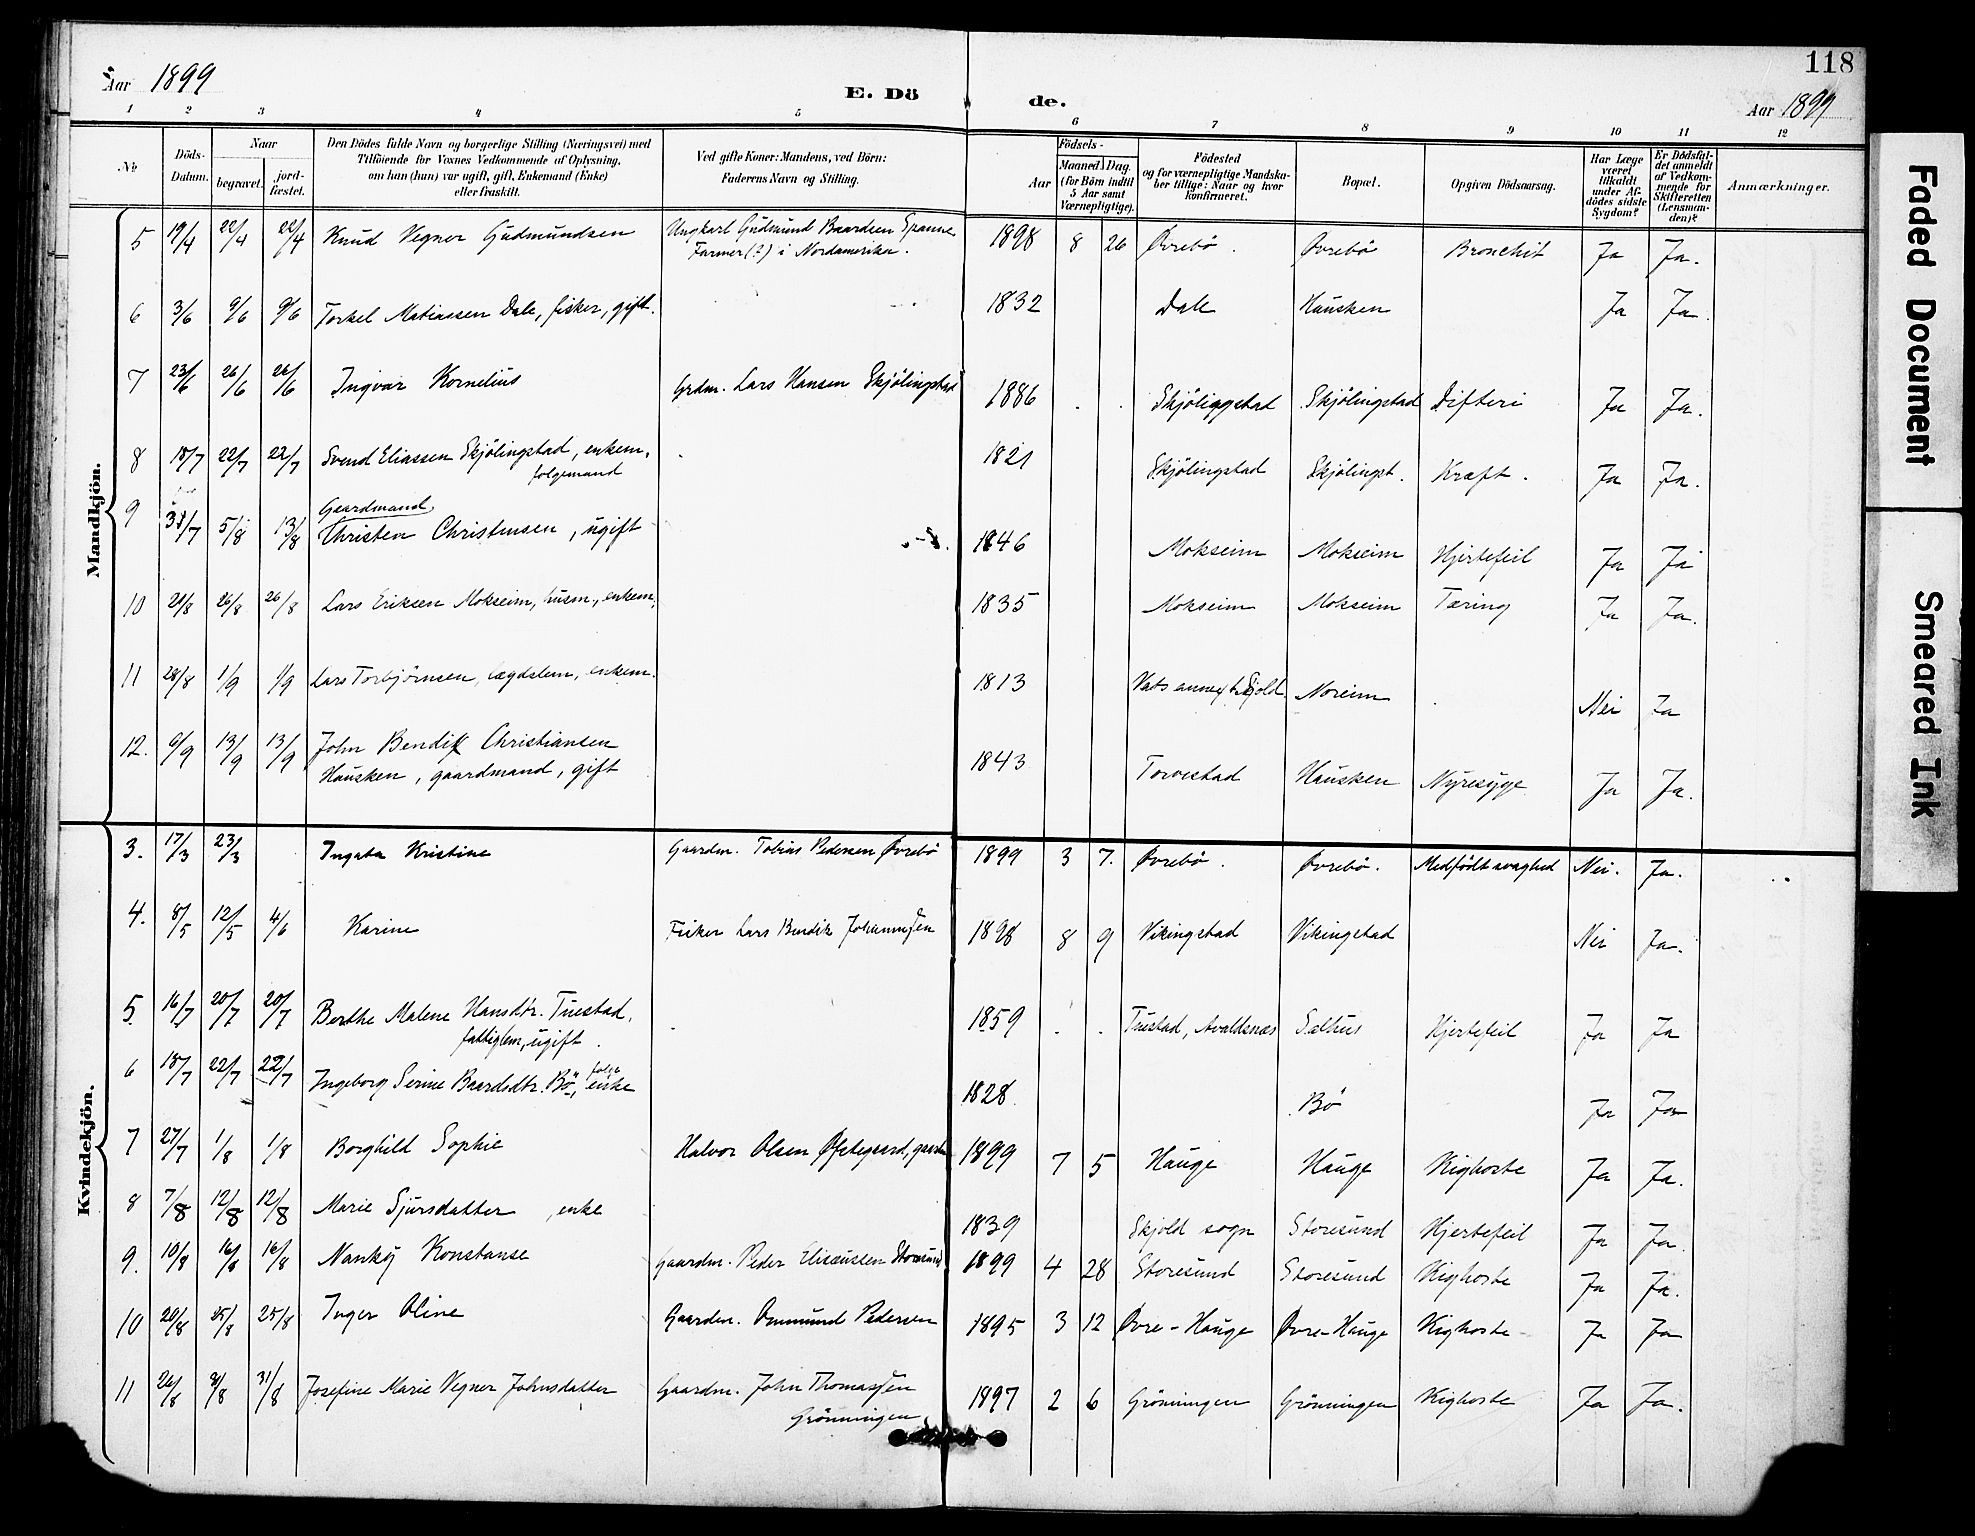 118
Aar 1899
E. Dö
de.
Aar 1899
1 2 3 4 5 6 7 8 9 10 11 12
No.
Döds-
Datum.
Naar
begravet.
jord-
fæstet.
Den Dödes fulde Navn og borgerlige Stilling (Næringsvei) med
Tilföiende for Voxnes Vedkommende af Oplysning,
om han (hun) var ugift, gift, Enkemand (Enke)
eller fraskilt.
Ved gifte Koner: Mandens, ved Börn:
Faderens Navn og Stilling.
Födsels-
Aar
Maaned Dag.
(for Börn indtil
5 Aar samt
Værnepligtige).
Födested
og for værnepligtige Mandska-
ber tillige: Naar og hvor
konfirmeret.
Bopæl.
Opgiven Dödsaarsag.
Har Læge
været
tilkaldt
under Af-
dödes sidste
Sygdom?
Er Dödsfal-
det anmeldt
af Vedkom-
mende for
Skifteretten
(Lensman-
den)?
Anmærkninger.
Mandkjön.
5 19/4 22/4 22/4 Knud Vegner Gudmundsen Ungkarl Gudmund Baardsen Spanne 1898 8 26 Øvrebö. Øvrebö Bronchit Ja Ja.
Farmer (?) i Nordamerika.
6 3/6 9/6 9/6 Torkel Matiassen Dale, fisker, gift. 1832 Dale Hausken Ja Ja.
7 23/6 26/6 26/6 Ingvar Kornelius Grdm. Lars Hansen Skjölingstad 1886 . . Skjöliggstad Skjölingstad Difteri Ja Ja.
8 18/7 22/7 22/7 Svend Eliassen Skjölingstad, enkem. . 1821 Skjölingstad Skjölingst. Kræft. Ja Ja.
folgemand
Gaardmand
9 31/7 5/8 13/8 Christen Christensen, ugift 1846 Mokseim Mokseim Hjertefeil Ja Ja
10 /8 26/8 26/8 Lars Eriksen Mokseim, husm., enkem. 1835 Mokseim Mokseim Tæring Ja Ja.
11 28/8 1/9 1/9 Lars Torbjörnsen, lægdslem, enkem. 1813 Vats annex t. Skjold Noreim . Nei Ja
12. 6/9 13/9 13/9 John Bendik Christiansen 1843 Torvestad Hausken Nyresyge Ja Ja.
Hausken, gaardmand, gift
Kvindekjön.
3. 17/3 23/3 Ingeta Kristine Gaardm. Tobias Pedersen Øvrebö 1899 3 7. Øvrebö. Øvrebö. Medfödt svaghed Nei. Ja.
4. 8/5 12/5 4/6 Karine Fisker Lars Bendik Johannessen 1898 8 9 Vikingstad Vikingstad Nei Ja.
5. 16/7 20/7 20/7 Berthe Malene Hansdtr. Tuestad, . 1859 . . Tuestad, Avaldsnæs Salhus Hjertefeil Ja Ja
fattiglem, ugift.
6 18/7 22/7 22/7 Ingeborg Serine Baardsdtr. Bö, folge enke 1828. Bö Ja Ja
7 27/7 1/8 1/8 Borghild Sophie Halvor Olsen Østegaard, 1899 7 5 Hauge Hauge Kighoste Ja Ja.
8 7/8 12/8 12/8 Marie Sjursdatter, enke 1839 Skjold sogn Storesund Hjertefeil Ja Ja.
9. 10/8 16/8 16/8 Nanköy Konstanse Gaardm. Peder Eliseussen Storesund 1899 4 28 Storesund Storesund Kighoste Ja Ja.
10 20/8 25/8 25/8 Inger Oline Gaardm. Ommund Pedersen 1895 3 12 Øvre-Hauge Øvre-Hauge Kighoste Ja Ja
11 26/8 31/8 31/8 Josefine Marie Vegner Johnsdatter Gaardm. John Thomassen 1897 2 6 Grönningen Grönningen Kighoste Ja Ja.
Grönningen
Faded Document
Smeared Ink